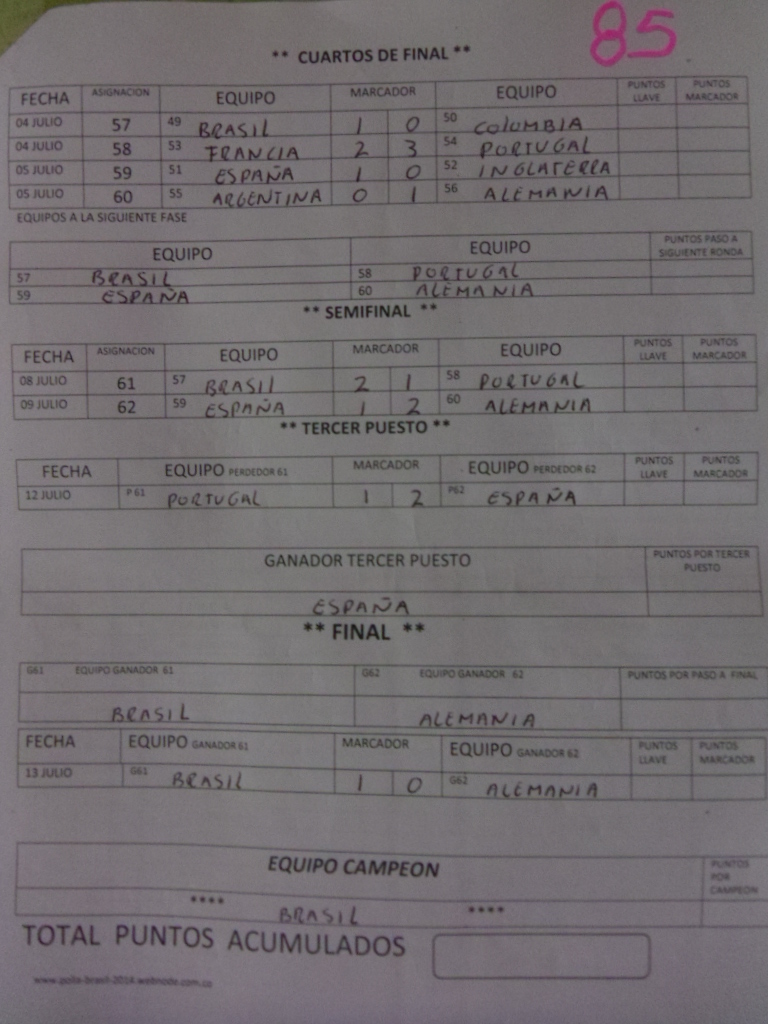 85
** CUARTOS DE FINAL **
FECHA ASIGNACION EQUIPO MARCADOR EQUIPO PUNTOS LLAVE PUNTOS MARCADOR
04 JULIO 57 49 BRASIL 1 0 50 COLUMBIA
04 JULIO 58 53 FRANCIA 2 3 54 PORTUGAL
05 JULIO 59 51 ESPAÑA 1 0 52 INGLATERRA
05 JULIO 60 55 ARGENTINA 0 1 56 ALEMANIA
EQUIPOS A LA SIGUIENTE FASE
EQUIPO EQUIPO PUNTOS PASO A SIGUIENTE RONDA
57 BRASIL 58 PORTUGAL
59 ESPAÑA 60 ALEMANIA
** SEMIFINAL **
FECHA ASIGNACION EQUIPO MARCADOR EQUIPO PUNTOS LLAVE PUNTOS MARCADOR
08 JULIO 61 57 BRASIL 2 1 58 PORTUGAL
09 JULIO 62 59 ESPAÑA 1 2 60 ALEMANIA
** TERCER PUESTO **
FECHA EQUIPO PERDEDOR 61 MARCADOR EQUIPO PERDEDOR 62 PUNTOS LLAVE PUNTOS MARCADOR
12 JULIO P 61 PORTUGAL 1 2 P62 ESPAÑA
GANADOR TERCER PUESTO PUNTOS POR TERCER PUESTO
ESPAÑA
** FINAL **
G61 EQUIPO GANADOR 61 G62 EQUIPO GANADOR 62 PUNTOS POR PASO A FINAL
BRASIL ALEMANIA
FECHA EQUIPO GANADOR 61 MARCADOR EQUIPO GANADOR 62 PUNTOS LLAVE PUNTOS MARCADOR
13 JULIO G61 BRASIL 1 0 G62 ALEMANIA
EQUIPO CAMPEON PUNTOS POR CAMPEON
**** BRASIL ****
TOTAL PUNTOS ACUMULADOS
www.polla-brasil-2014.webnode.com.co